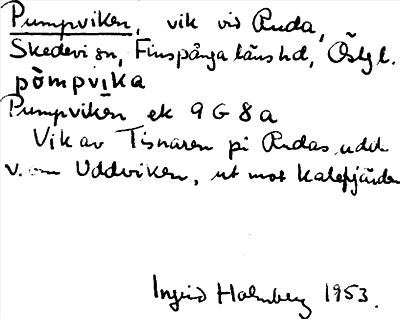 Pumpviken, vik vid Ruda,
Skedevi sn, Finspånga länshd, Östgl.
pòmpvika
Pumpviken ek 9G8a
Vik av Tisnaren på Rudas udde
v. om Uddviken, ut mot Kalvfjärden
Ingrid Holmberg 1953.